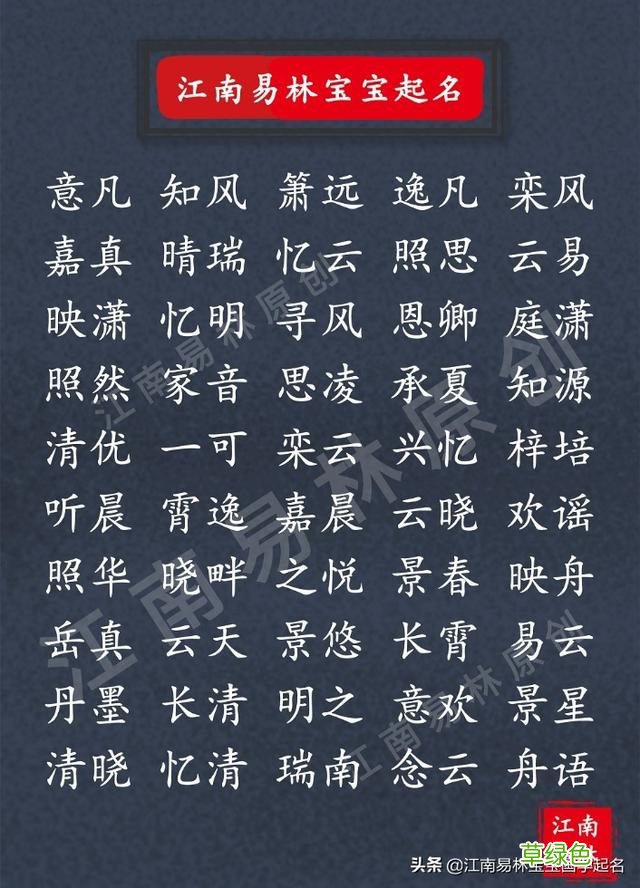 江南易林宝宝起名
意凡 知风 箫远 逸凡 栾风
嘉真 晴瑞 忆云 照思 云易
映潇 忆明 寻风 恩卿 庭潇
照然 家音 思凌 承夏 知源
清优 一可 栾云 兴忆 梓培
听晨 霄逸 嘉晨 云晓 欢谣
照华 晓畔 之悦 景春 映舟
岳真 云天 景悠 长霄 易云
丹墨 长清 明之 意欢 景星
清晓 忆清 瑞南 念云 舟语
江南易林原创
江南易林原创
江南易林原创
江南
草绿色
头条 @江南易林宝宝国学起名